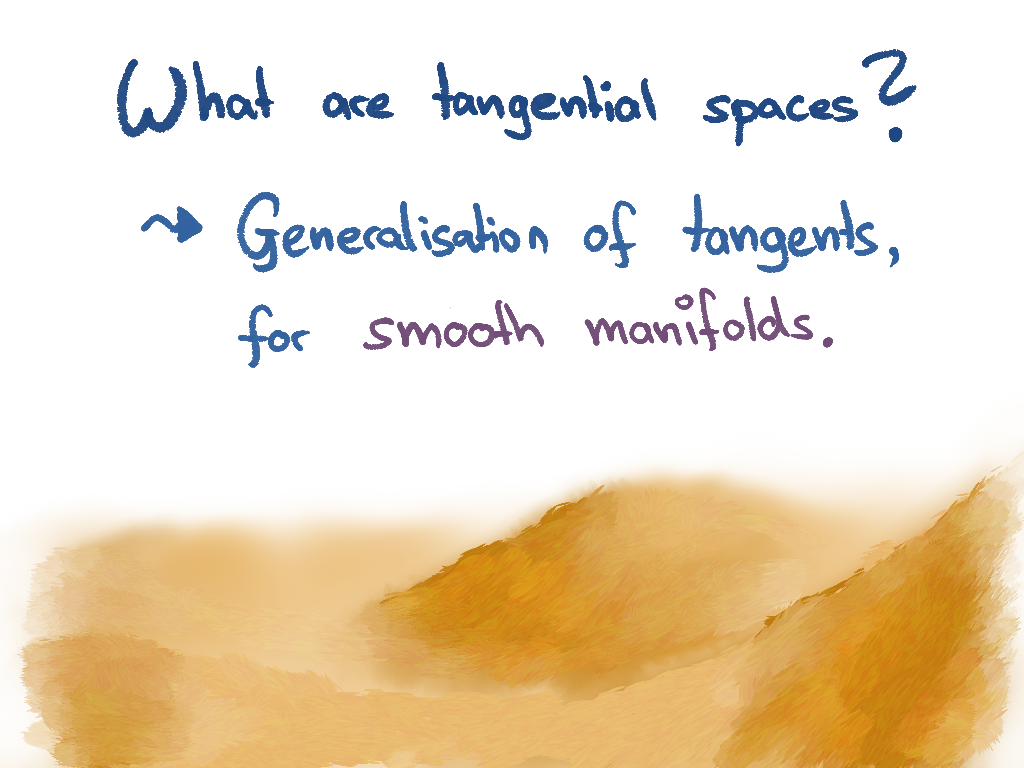 What are tangential spaces?
↝ Generalisation of tangents,
for smooth manifolds.